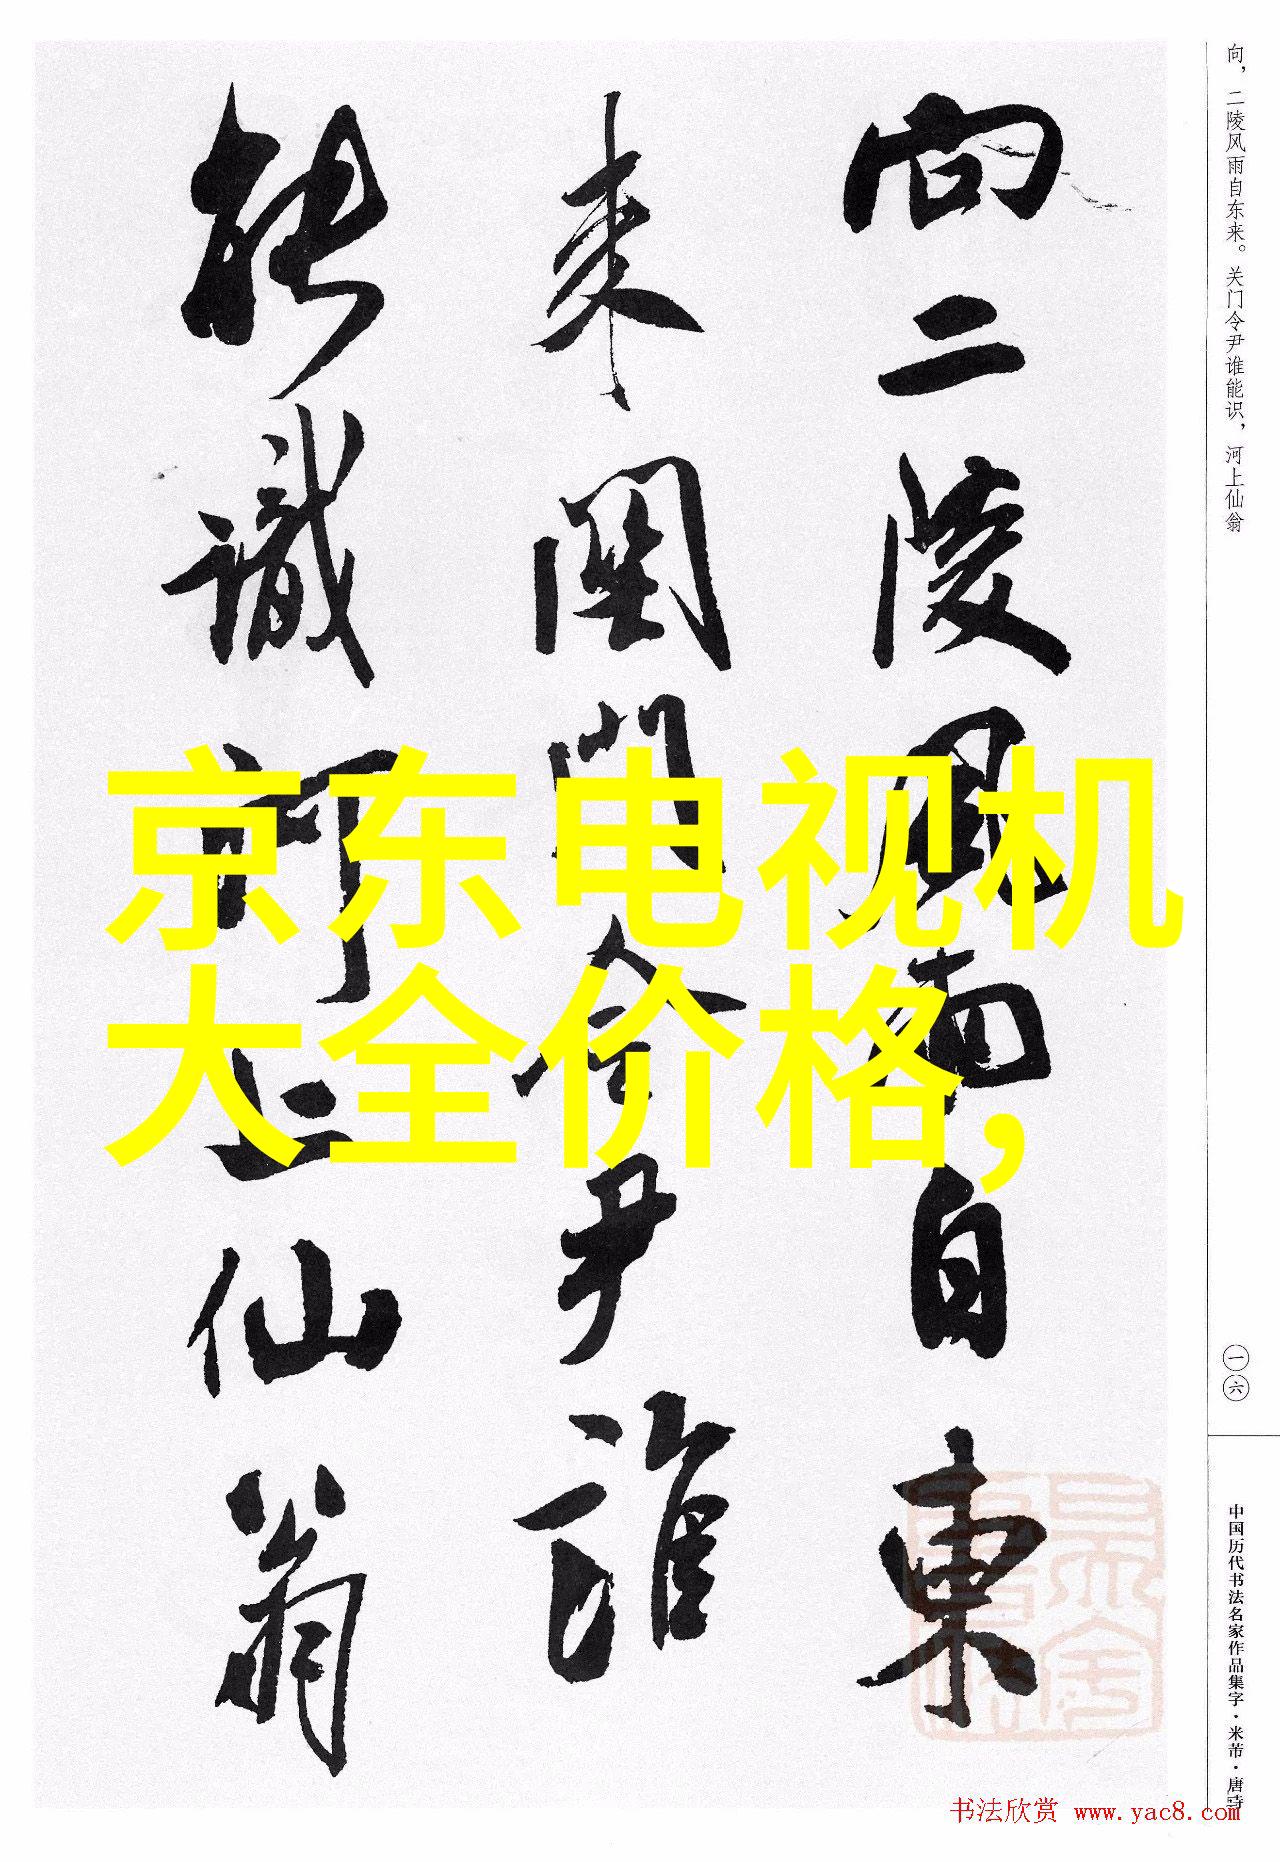 向二陵風雨自東
来関門令尹誰
能識河上仙翁
京东电视机
大全价格,
向，二陵风雨自东来。关门令尹谁能识，河上仙翁
一六
中国历代书法名家作品集字·米芾·唐诗
书法欣赏 www.yac8.com